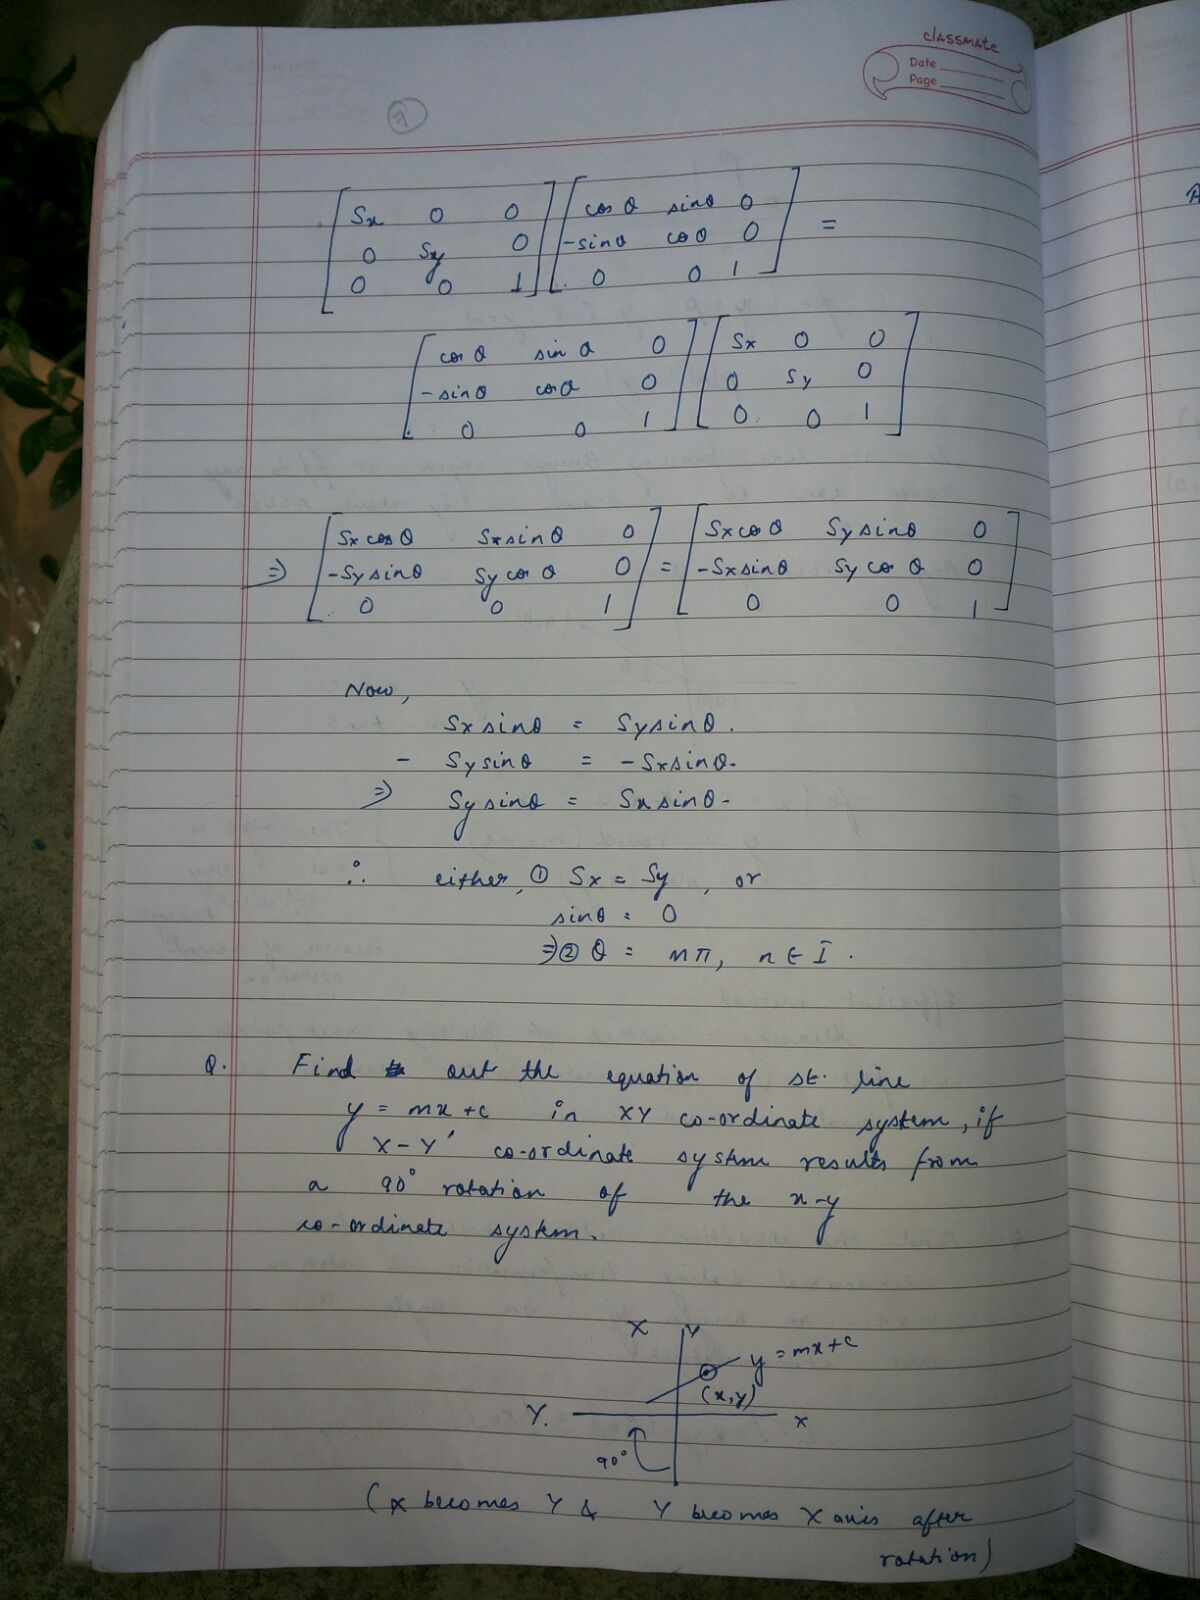 classmate
Date
Page
7
[Sx 0 0] [cos θ sin θ 0] =
[0 Sy 0] [-sin θ cos θ 0]
[0 0 1] [0 0 1]
[cos θ sin θ 0] [Sx 0 0]
[-sin θ cos θ 0] [0 Sy 0]
[0 0 1] [0 0 1]
⇒ [Sx cos θ Sx sin θ 0] = [Sx cos θ Sy sin θ 0]
[-Sy sin θ Sy cos θ 0] [-Sx sin θ Sy cos θ 0]
[0 0 1] [0 0 1]
Now,
Sx sin θ = Sy sin θ.
- Sy sin θ = - Sx sin θ.
⇒ Sy sin θ = Sx sin θ.
∴ either, ① Sx = Sy, or
sin θ = 0
⇒ ② θ = nπ, n ∈ I.
Q. Find out the equation of st. line
y = mx + c in XY co-ordinate system, if
X-Y' co-ordinate system results from
a 90° rotation of the x-y
co-ordinate system.
X Y
y = mx + c
(x, y)
Y. x
90°
(x becomes Y & Y becomes X axis after
rotation)